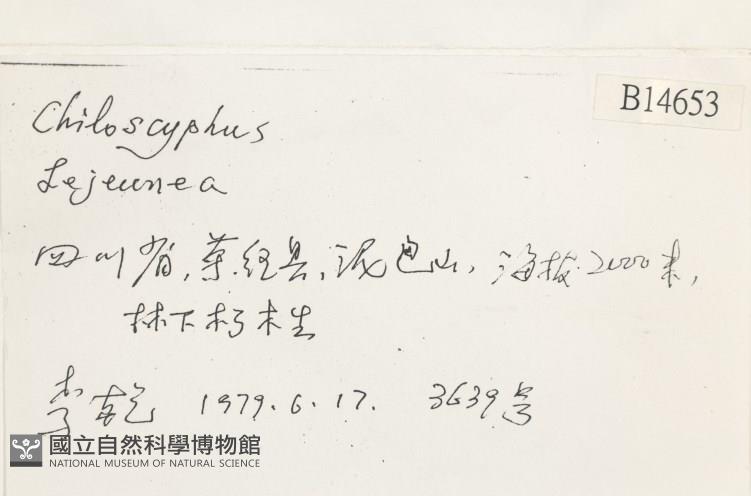 B14653
Chiloscyphus
Lejeunea
四川省,荥经县,泥巴山,海拔2000米,
林下朽木生
李乾 1979.6.17. 3639号
國立自然科學博物館
NATIONAL MUSEUM OF NATURAL SCIENCE